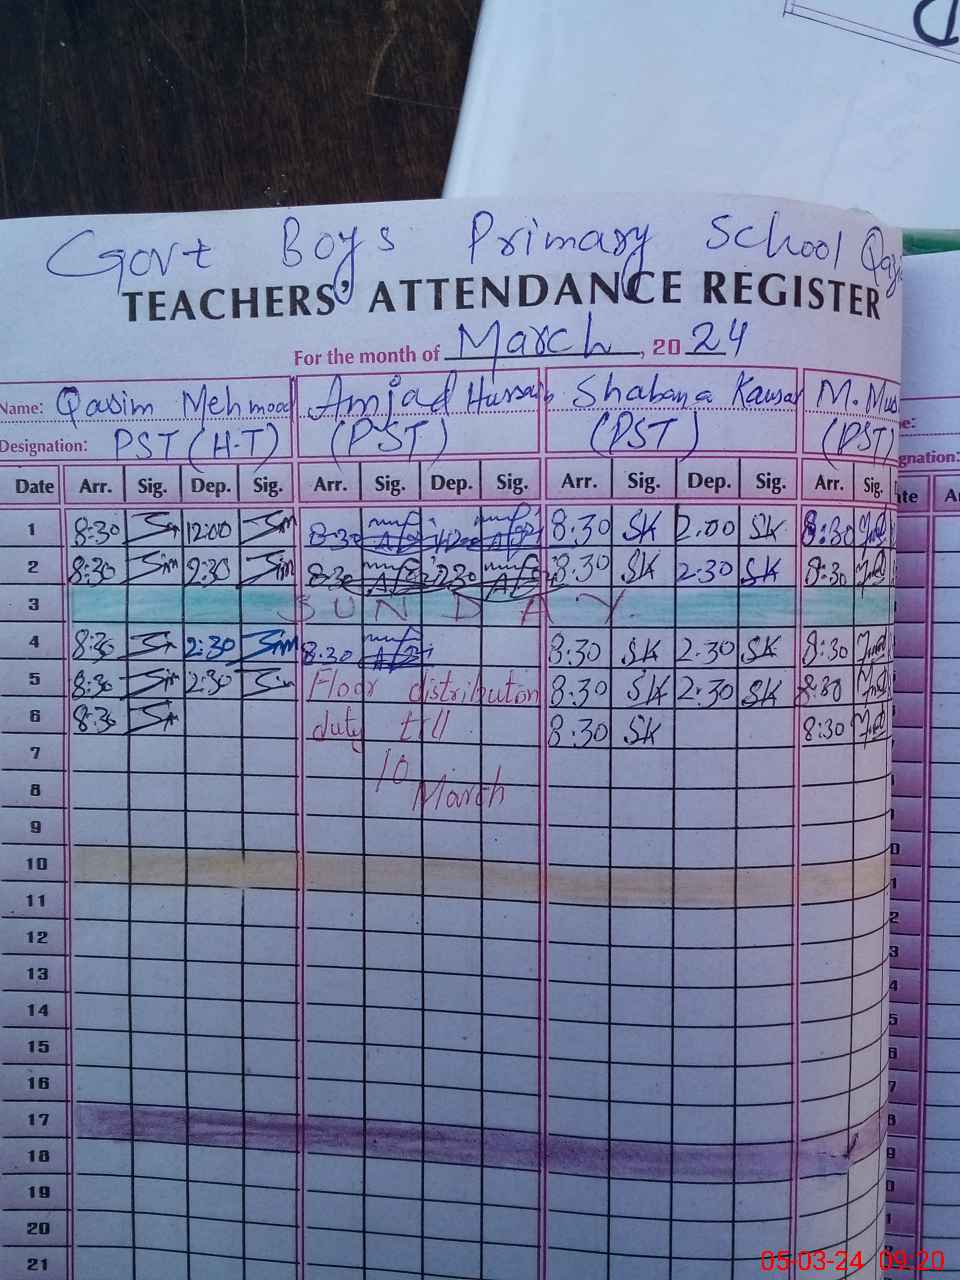 Govt Boys Primary School
TEACHERS' ATTENDANCE REGISTER
For the month of March, 2024
Name: Qasim Mehmood Amjad Hussain Shabana Kausar M.
Designation: PST (H.T) (PST) (PST) (PST)
Date Arr. Sig. Dep. Sig. Arr. Sig. Dep. Sig. Arr. Sig. Dep. Sig. Arr. Sig.
1 8:30 12:00 8:30 8:30 SK 2:00 SK 8:30
2 8:30 2:30 8:30 2:30 8:30 SK 2:30 SK 8:30
3 SUNDAY
4 8:30 2:30 8:30 8:30 SK 2:30 SK 8:30
5 8:30 2:30 Floor distribution 8:30 SK 2:30 SK 8:30
6 8:30 duty till 8:30 SK 8:30
7 10
8 March
9
10
11
12
13
14
15
16
17
18
19
20
21
05-03-24 09:20